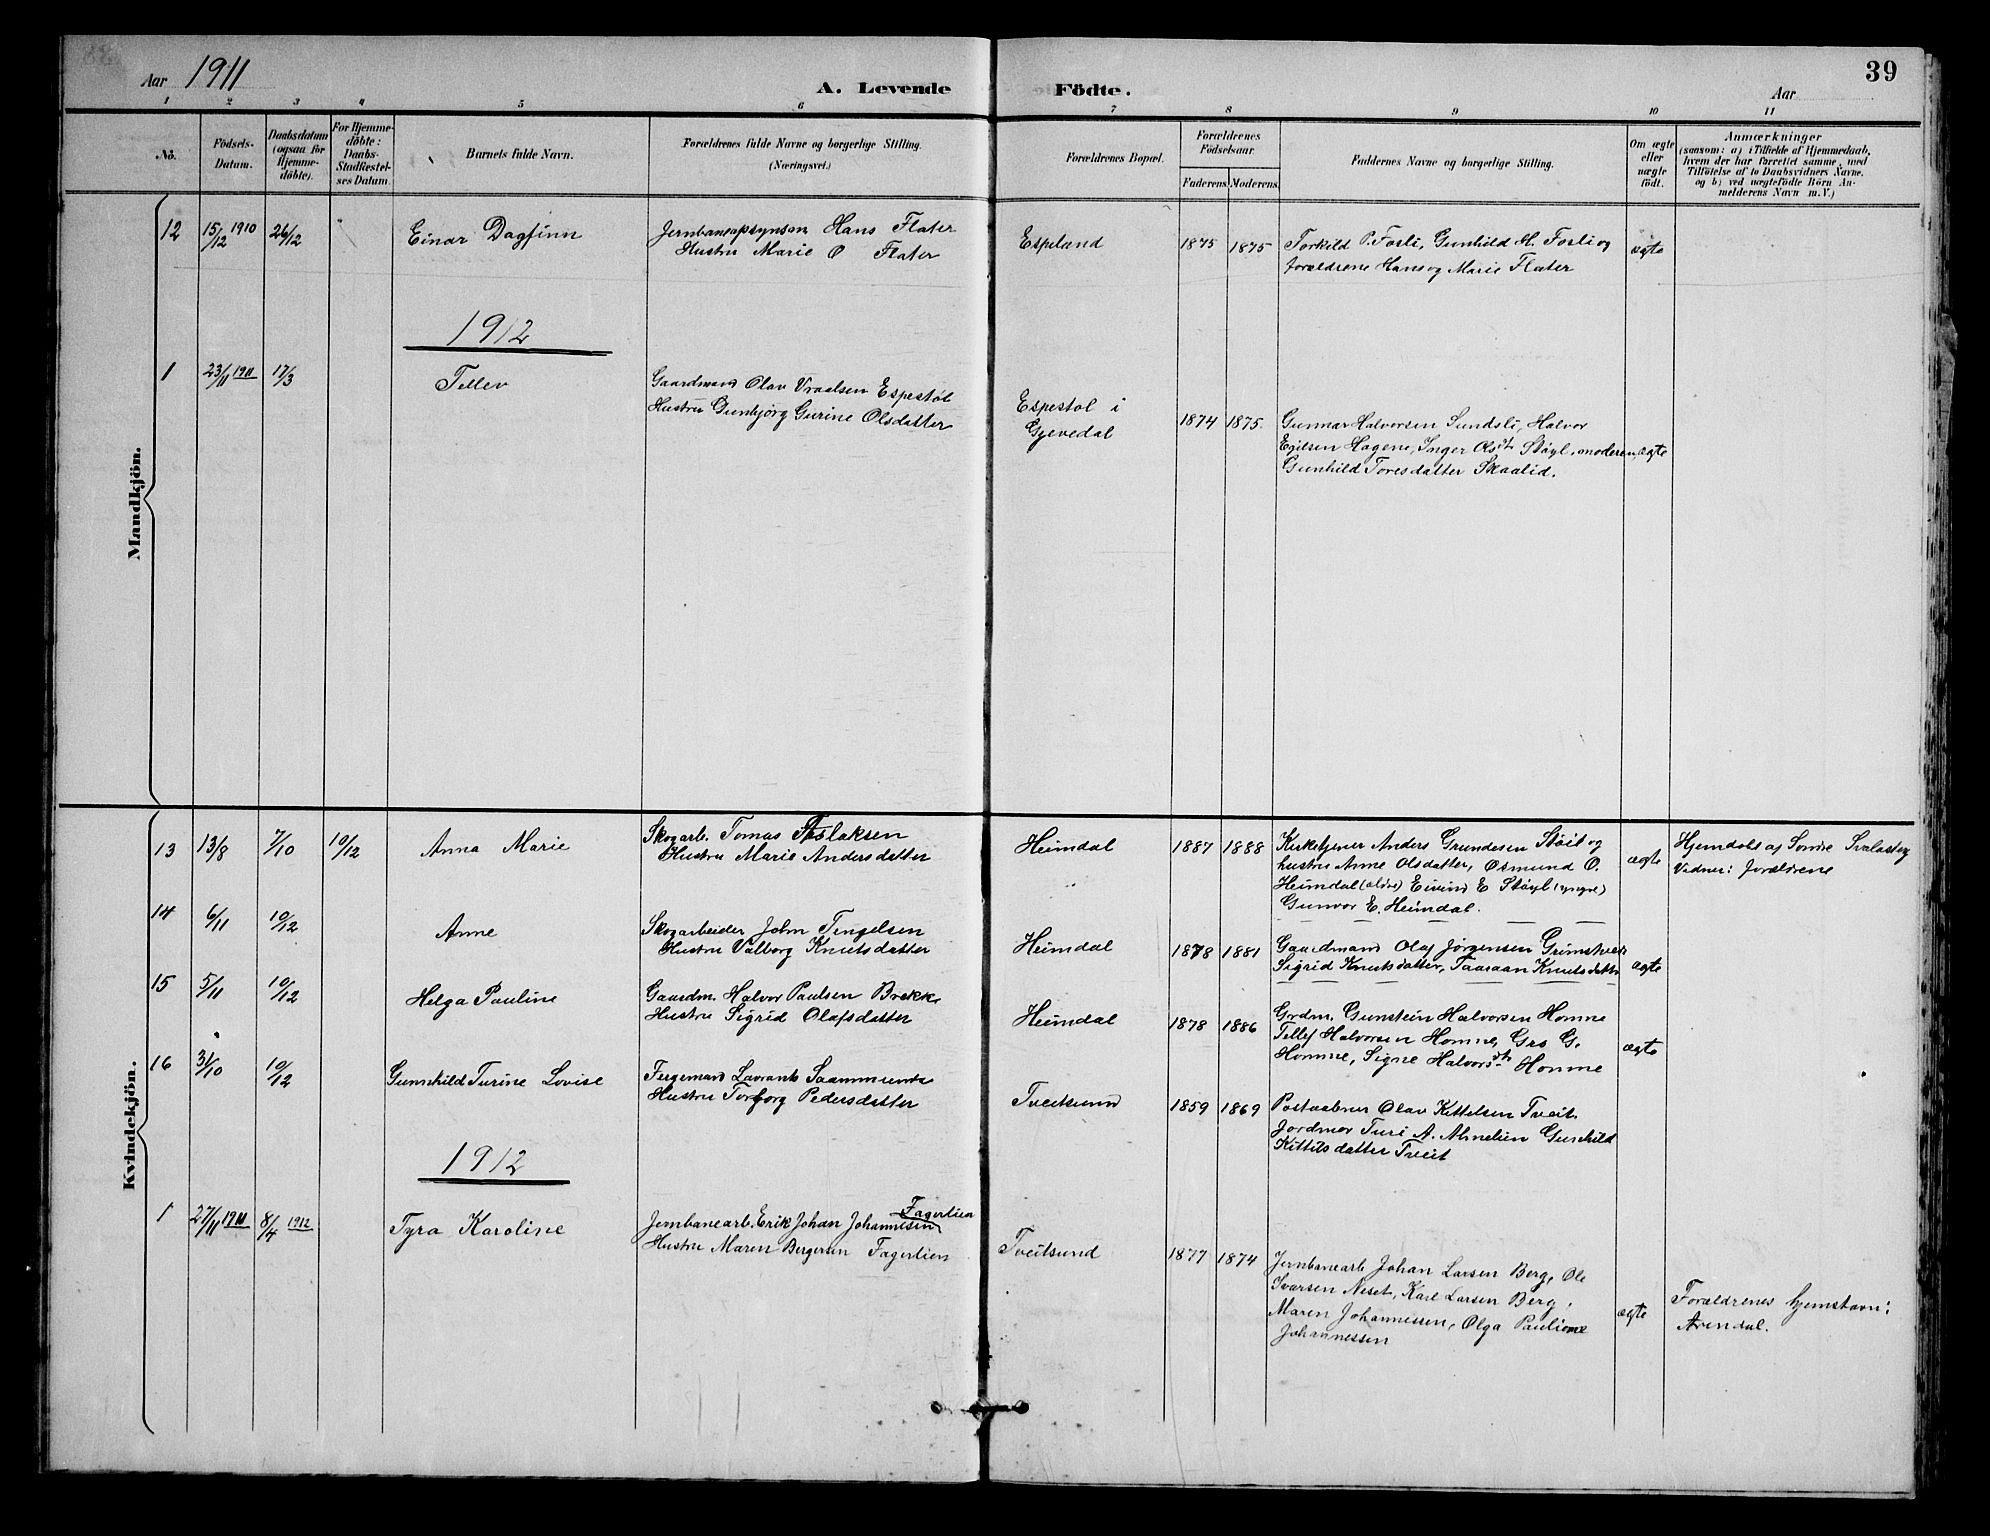 Aar 1911
A. Levende Födte.
Aar
39
1 2 3 4 5 6 7 8 9 10 11
Nô.
Födsels-
Datum.
Daabsdatum
(ogsaa for
Hjemme-
döbte).
For Hjemme-
döbte:
Daabs-
Stadfæstel-
ses Datum.
Barnets fulde Navn.
Forældrenes fulde Navne og borgerlige Stilling.
(Næringsvei.)
Forældrenes Bopæl.
Forældrenes
Födselsaar.
Faderens. Moderens.
Faddernes Navne og borgerlige Stilling.
Om ægte
eller
uægte
födt.
Anmærkninger
(saasom: a) i Tilfælde af Hjemmedaab,
hvem der har forrettet samme, med
Tilföielse af to Daabsvidners Navne,
og b) ved uægtefödte Börn An-
melderens Navn m. V.)
Mandkjön.
12 15/12 1910 26/12 Einar Dagfinn
Jernbaneopsynsm Hans Flater
Hustru Marie O Flater
Espeland 1875 1875
Torkild P. Fosli, Gunhild H. Fosli og
forældrene Hans og Marie Flater
ægte
1912
1 23/11 1911 17/3 Tellev
Gaardmand Olav Vraalsen Espestøl
Hustru Gunbjørg Gurine Olsdatter
Espestøl i
Gjevedal
1874 1875.
Gunnar Halvorsen Sundsli, Halvor
Egilsen Hagene, Inger Olsdt Støyl, moderen,
Gunhild Toresdatter Skaalid.
ægte
Kvindekjön.
13 13/8 7/10 10/12 Anna Marie
Skogarb. Tomas Aslaksen
Hustru Marie Andersdatter
Heimdal 1887 1888
Kirketjener Anders Grundesen Støil og
hustru Anne Olsdatter, Osmund O.
Heimdal (ældre) Eivind E Støyl (yngre)
Gunvor E. Heimdal.
ægte
Hjemdøbt af Sondre Svalastog
Vidner: forældrene
14 6/11 10/12 Anne
Skogarbeider John Tengelsen
Hustru Valborg Knutsdatter
Heimdal 1878 1881
Gaardmand Olaf Jørgensen Grimstveit
Sigrid Knutsdatter, Taaraan Knutsdatter
ægte
15 5/11 10/12 Helga Pauline
Gaardm. Halvor Paulsen Brekke
Hustru Sigrid Olafsdatter
Heimdal 1878 1886
Grdm. Gunstein Halvorsen Homme
Tellef Halvorsen Homme, Gro G.
Homme, Signe Halvorsdt Homme
ægte
16 31/10 10/12 Gunnhild Turine Lovise
Fergemand Lavrants Saammunds
Hustru Torborg Pedersdatter
Tveitsund 1859 1869
Postaabner Olav Kittelsen Tveit
Jordmor Turi A. Almelien Gunhild
Kittilsdatter Tveit
1912
1 27/11 1911 8/4 1912 Tyra Karoline
Jernbanearb. Erik Johan Johannesen Fagerlien
Hustru Maren Bergersen Fagerlien
Tveitsund 1877 1874
Jernbanearb Johan Larsen Berg, Ole
Ivarsen Neset, Karl Larsen Berg,
Maren Johannessen, Olga Pauline
Johannessen
ægte
Forældrenes hjemstavn:
Arendal.